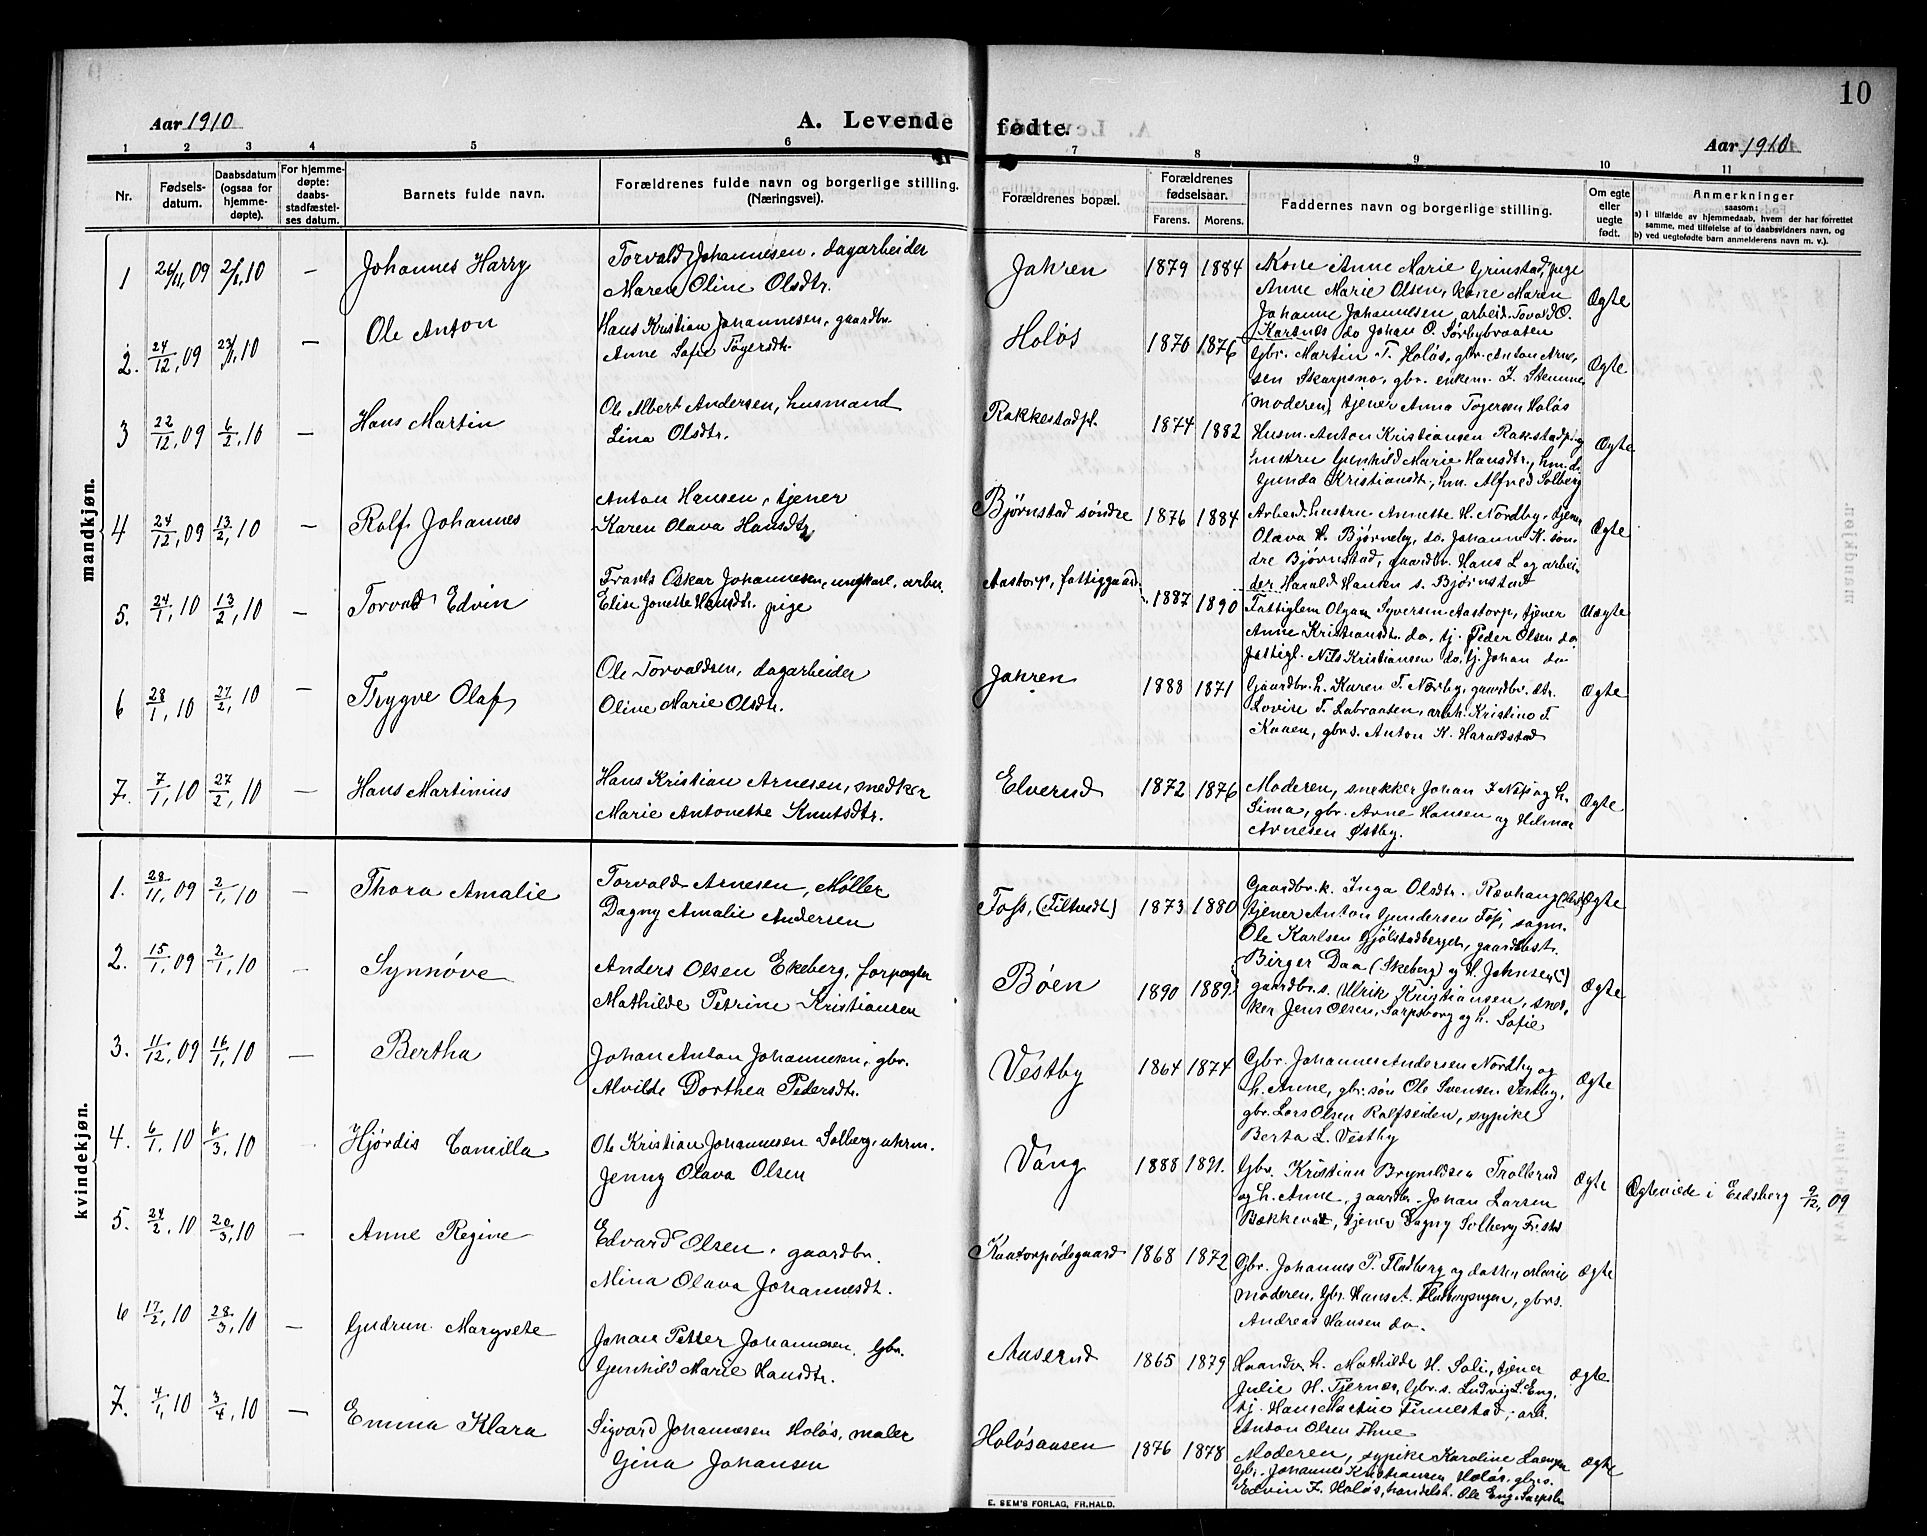 10
Aar 1910
A. Levende fødte.
Aar 1910
1 2 3 4 5 6 7 8 9 10 11
Nr.
Fødsels-
datum.
Daabsdatum
(ogsaa for
hjemme-
døpte).
For hjemme-
døpte:
daabs-
stadfæstel-
ses datum.
Barnets fulde navn.
Forældrenes fulde navn og borgerlige stilling.
(Næringsvei).
Forældrenes bopæl.
Forældrenes
fødselsaar.
Farens. Morens.
Faddernes navn og borgerlige stilling.
Om egte
eller
uegte
født.
Anmerkninger
saasom:
a) i tilfælde av hjemmedaab, hvem der har forrettet
samme, med tilføielse af to daabsvidners navn, og
b) ved uegtefødte barn anmelderens navn m. v.).
mandkjøn.
1 26/11, 09 2/1, 10 — Johannes Harry
Torvald Johannesen, dagarbeider
Maren Oline Olsdtr.
Jahren 1879 1884
Kone Anne Marie Grinstad, pige
Anne Marie Olsen, kone Maren
Johanne Johannesen, arbeid. Tovald O.
Kartnes do Johan O. Sørbybraaten
Ægte
2. 24/12, 09 23/1, 10 — Ole Anton
Hans Kristian Johannesen, gaardbr.
Anne Sofie Tøgersdtr.
Holøs 1870 1876
Gbr. Martin T. Holøs, gbr. Anton Arne-
sen Skarpsno, gbr. enkem. J. Stemme
(moderen) tjener Anna Togersen Holøs
Ægte
3 22/12, 09 6/2, 10 — Hans Martin
Ole Albert Andersen, husmand
Lina Olsdtr.
Rakkestadpl. 1874 1882
Husm. Anton Kristiansen Rakstadpl. og
hustru Gunhild Marie Hansdtr., hm. d.
Gunda Kristiansdt., hm. Alfred Solberg
Ægte
4 24/12, 09 13/2, 10 — Rolf Johannes
Anton Hansen, tjener
Karen Olava Hansdtr.
Bjørnstad søndre 1876 1884
Arbeid. hustru Annette H. Nordby, tjener
Olava H. Bjørneby, do. Johanne K. søn-
dre Bjørnstad, gaardbr. Hans L og arbei-
der Harald Hansen s. Bjørnstad
Ægte
5. 24/1, 10 13/2, 10 — Torvald Edvin
Frants Oskar Johannesen, ungkarl, arbei.
Elise Jonette Hansdtr. pige
Aastorp, fattiggaard. 1887 1890
Fattiglem Olgan Syversen Aastorp, tjener
Anne Kristiansdt. do. tj. Peder Olsen do
fattigl. Nils Kristiansen do, tj. Johan do
Uægte
6 28/1, 10 27/2, 10 — Trygve Olaf
Ole Torvaldsen, dagarbeider
Oline Marie Olsdtr.
Jahren 1888 1871
Gaardbr. h. Karen T. Nærby, gaardbr. dtr.
Lovise T. Labraaten, arb.h. Kristine T.
Kaaen, gbrs. Anton K. Haraldstad
Ægte
7. 7/1, 10 27/2, 10 — Hans Martinius
Hans Kristian Arnesen, snedker
Marie Antonette Knutsdtr.
Elverud 1872 1876
Moderen, snekker Johan J Næs og h.
Sima, gbr. Arne Hansen og Hilmar
Arnesen Østby.
Ægte
kvindekjøn.
1. 28/11, 09 2/1, 10 — Thora Amalie
Torvald Arnesen, Møller
Dagny Amalie Andersen
Foss, (Filtvedt) 1873 1880
Gaardbr. k. Inga Olsdtr. Rævhaug
tjener Anton Gundersen Fos, sagm.
Ole Karlsen Gjølstadberget, gaardbest.
Birger Daa (Skeberg) og H. Johnsen
Ægte
2. 15/1, 09 2/1, 10 — Synnøve
Anders Olsen Ekeberg, forpagter
Mathilde Petrine Kristiansen
Bøen 1890 1889
gaardbr. s. Ulrik Kristiansen, sned-
ker Jens Olsen, Sarpsborg og h. Sofie
Ægte
3. 11/12, 09 16/1, 10 — Bertha
Johan Anton Johannesen, gbr.
Alvilde Dorthea Pedersdtr.
Vestby 1864 1874
Gbr. Johannes Andersen Nordby og
h. Anne, gbr. søn Ole Svensen Vestby,
gbr. Lars Olsen Rolfseiden, sypike
Berta L. Vestby
Ægte
4. 6/1, 10 6/3, 10 Hjørdis Camilla
Ole Kristian Johannesen Solberg, uhrm.
Jenny Olava Olsen
Vang 1888 1891.
Gbr. Kristian Brynildsen Trollerud
og h. Anne, gaardbr. Johan Larsen
Bækkevar, tjener Dagny Solberg
Ægte Ægteviede i Eidsberg 9/12, 09
5. 24/2, 10 20/3, 10 — Anne Regine
Edvard Olsen, gaardbr.
Mina Olava Johannesdt.
Kaatorpødegaard 1868 1872
Gbr. Johannes P. Fladberg og datter Marie
moderen, Gbr. Hans A. gbrs.
Andreas Hansen do.
Ægte
6 17/2, 10 28/3, 10 — Gudrun Margrete
Johan Petter Johannesen, Gbr.
Gunhild Marie Hansdtr.
Auserud 1865 1879
Haandv. h. Mathilde H. Soli, tjener
Julie H. Tjernes, Gbr. s. Ludvig L. Eng,
tj. Hans Martine Finnestad, arb.
Anton Olsen Thue
Ægte
7. 4/1, 10 3/4, 10 — Emma Klara
Sigvard Johannesen Holøs, maler
Gina Johansen
Holøsaasen 1876 1878
Moderen, sypike Karoline
Gbr. Johannes Kristiansen Holøs, gbrs.
Edvin F. Holøs, handelsb. Ole Eng, Sarpsb.
Ægte
E. SEM'S FORLAG, FR.HALD.